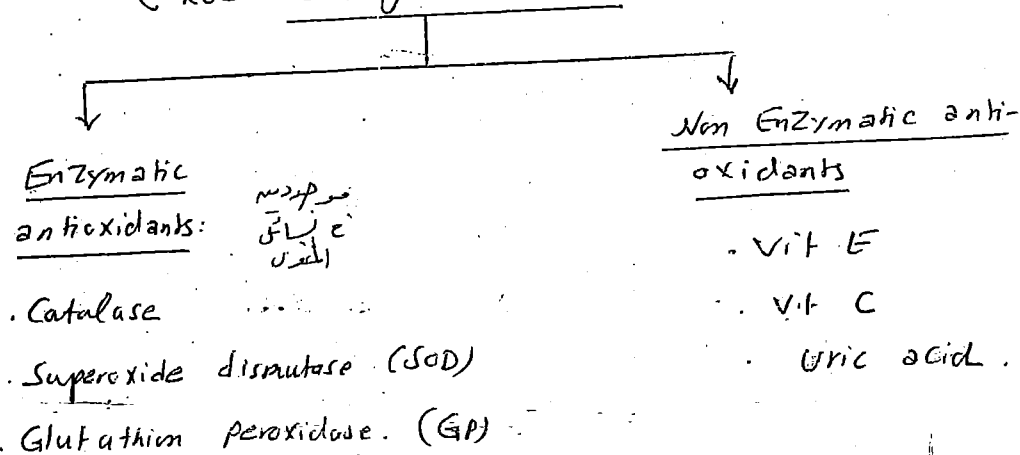 Enzymatic
antioxidants:
موجودين
في سائل
المنوي
. Catalase
. Superoxide dismutase (SOD)
. Glutathion peroxidase. (GP)
Non Enzymatic anti-
oxidants
. Vit E
. Vit C
. Uric acid.